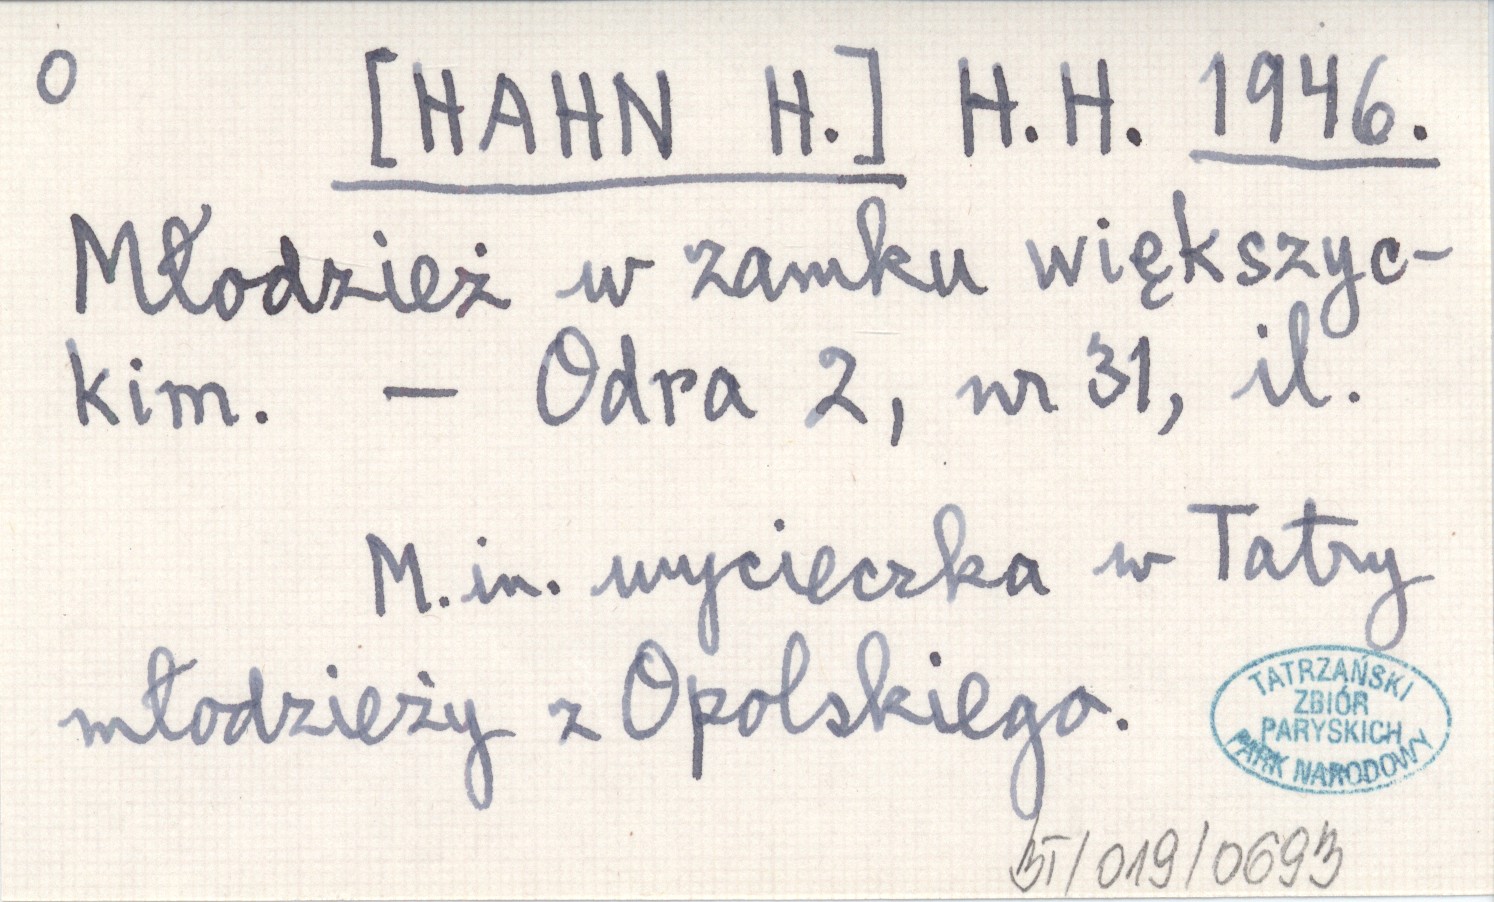 O
[HAHN H.] H.H. 1946.
Młodzież w zamku większyc-
kim. — Odra 2, nr 31, il.
M.in. wycieczka w Tatry
młodzieży z Opolskiego.
TATRZAŃSKI
ZBIÓR
PARYSKICH
PARK NARODOWY
BT/019/0693